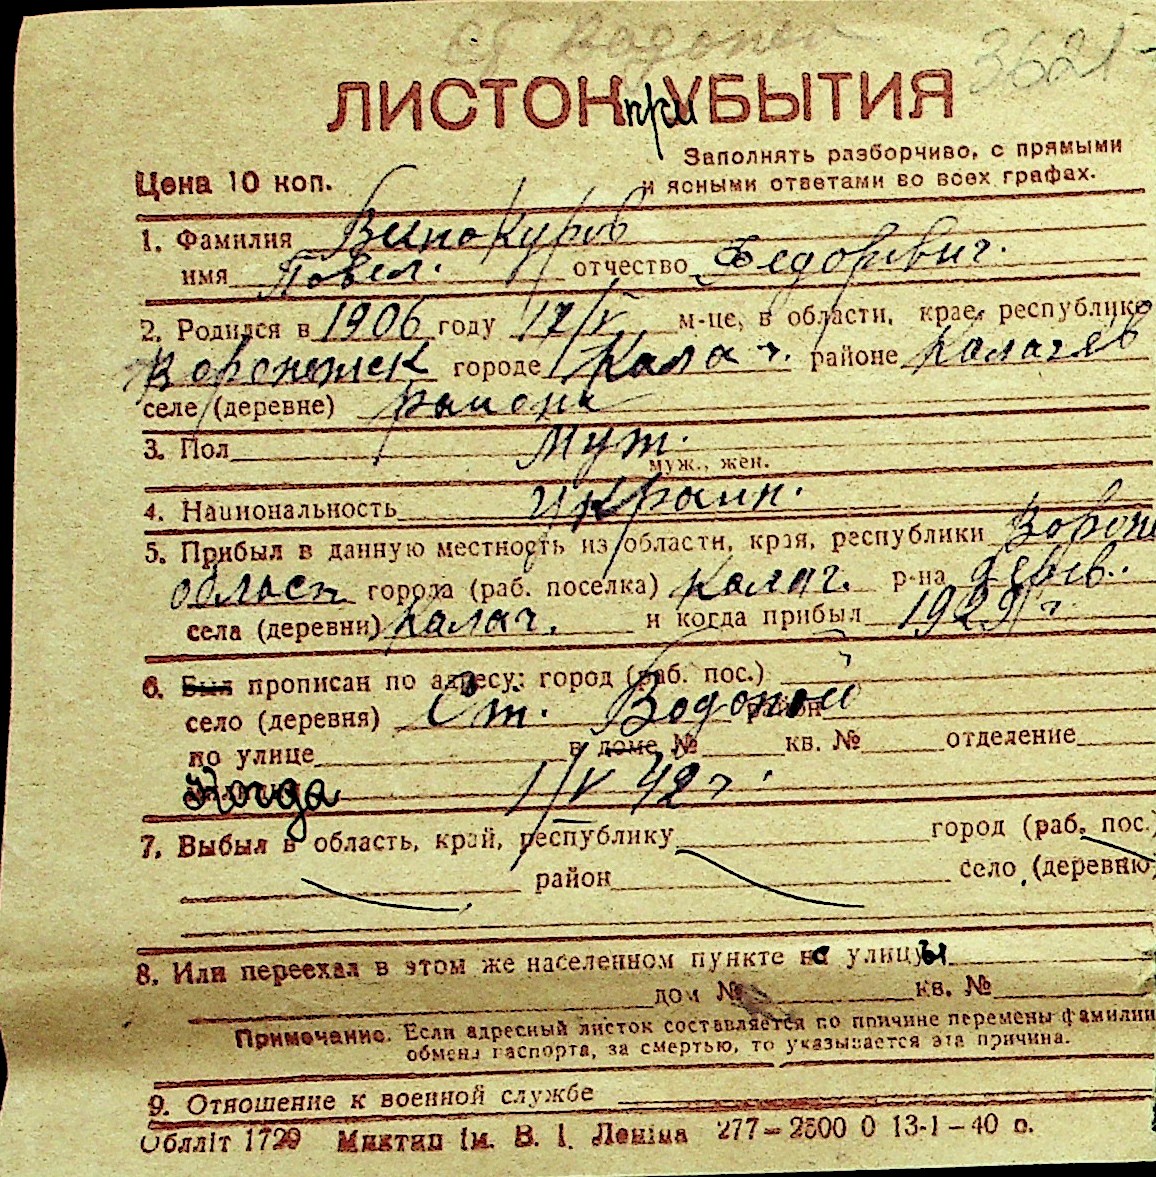 Ст Водопой 3621
ЛИСТОК при УБЫТИЯ
Заполнять разборчиво, с прямыми
Цена 10 коп. и ясными ответами во всех графах.
1. Фамилия Винокуров
имя Повел. отчество Федорович.
2. Родился в 1906 году 17/V м-це, в области, крае, республике
Воронежск городе Калач. районе Калачев
селе (деревне) района
3. Пол Муж.
муж., жен.
4. Национальность украин.
5. Прибыл в данную местность из области, края, республики Вороне
област города (раб. поселка) Калач. р-на
села (деревни) Калач. и когда прибыл 1929 г.
6. Был прописан по адресу: город (раб. пос.)
село (деревня) Ст. Водопой район
по улице в доме № кв. № отделение
Когда 1/V 42 г.
7. Выбыл в область, край, республику город (раб. пос.)
район село (деревню)
8. Или переехал в этом же населенном пункте с улицы
дом № кв. №
Примечание. Если адресный листок составляется по причине перемены фамилии
обмена паспорта, за смертью, то указывается эта причина.
9. Отношение к военной службе
Облліт 1729 Миктип ім. В. І. Леніна 277—2500 0 13-1—40 р.